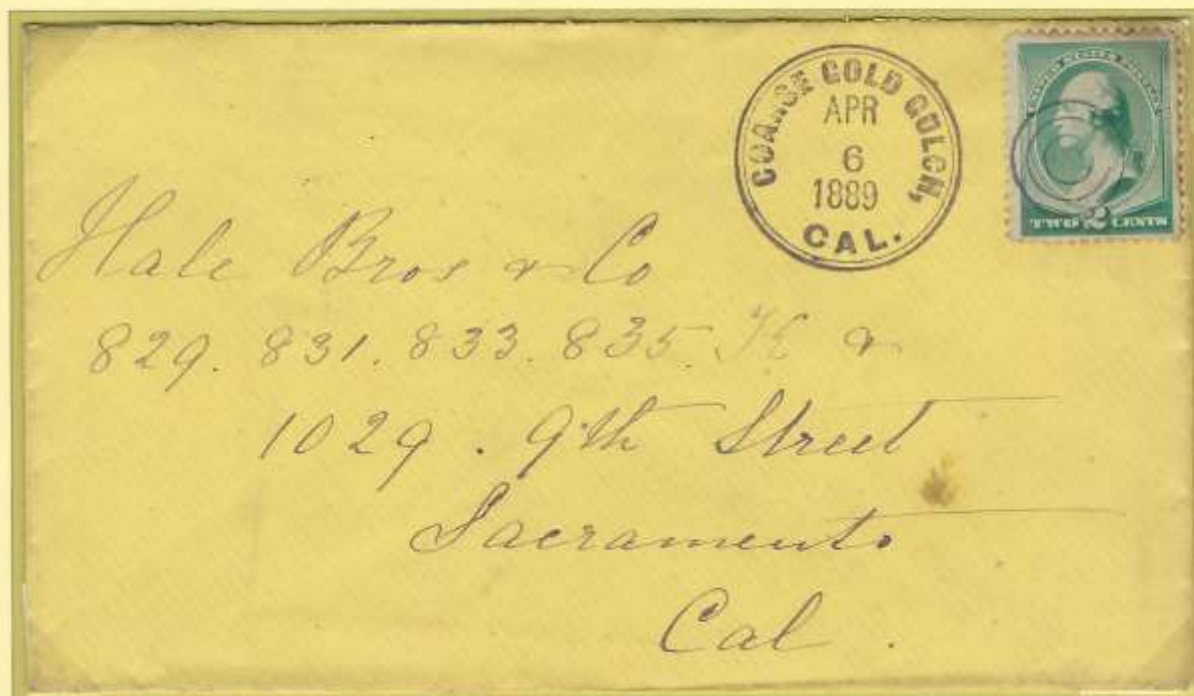 COARSE GOLD GULCH,
APR
6
1889
CAL.
TWO 2 CENTS
Hale Bros & Co
829. 831. 833. 835 K &
1029. 9th Street
Sacramento
Cal.